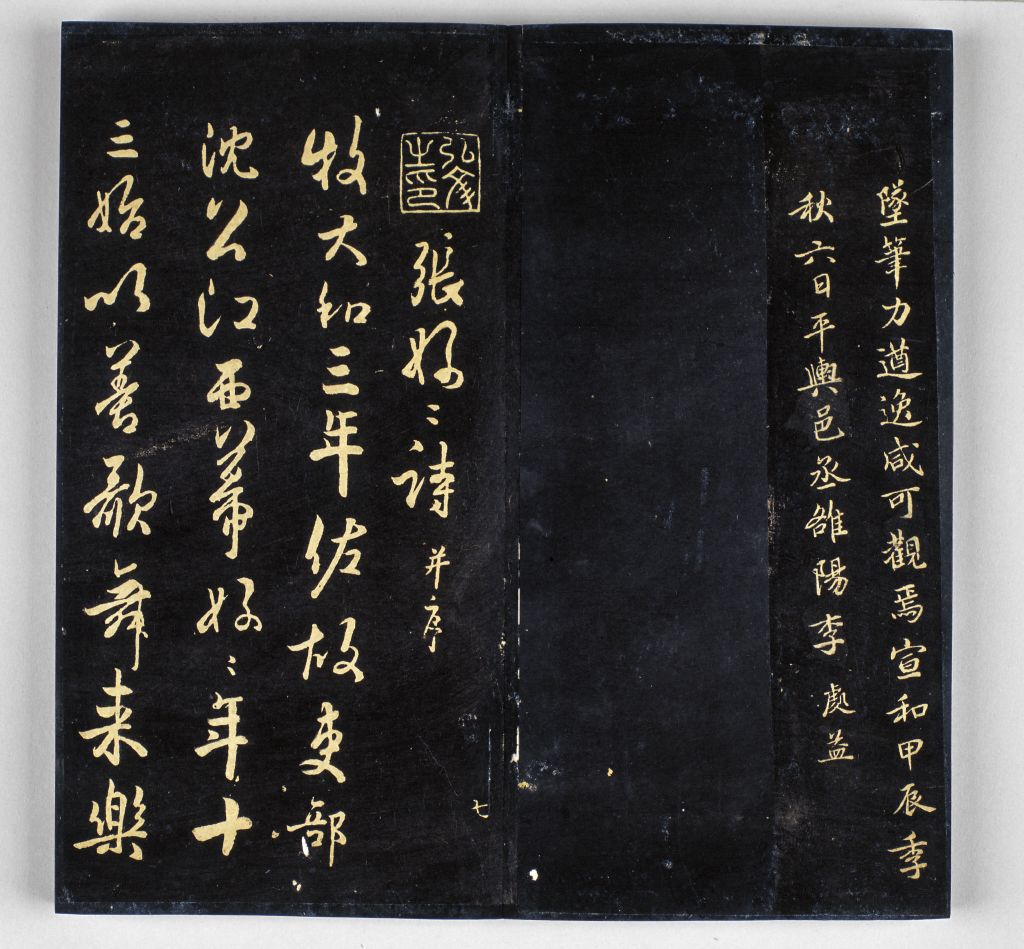 墜筆力遒逸咸可觀焉宣和甲辰季
秋六日平輿邑丞雒陽李處益
弘文之印
張好〻詩 并序
七
牧大和三年佐故吏部
沈公江西幕好〻年十
三始以善歌舞来樂